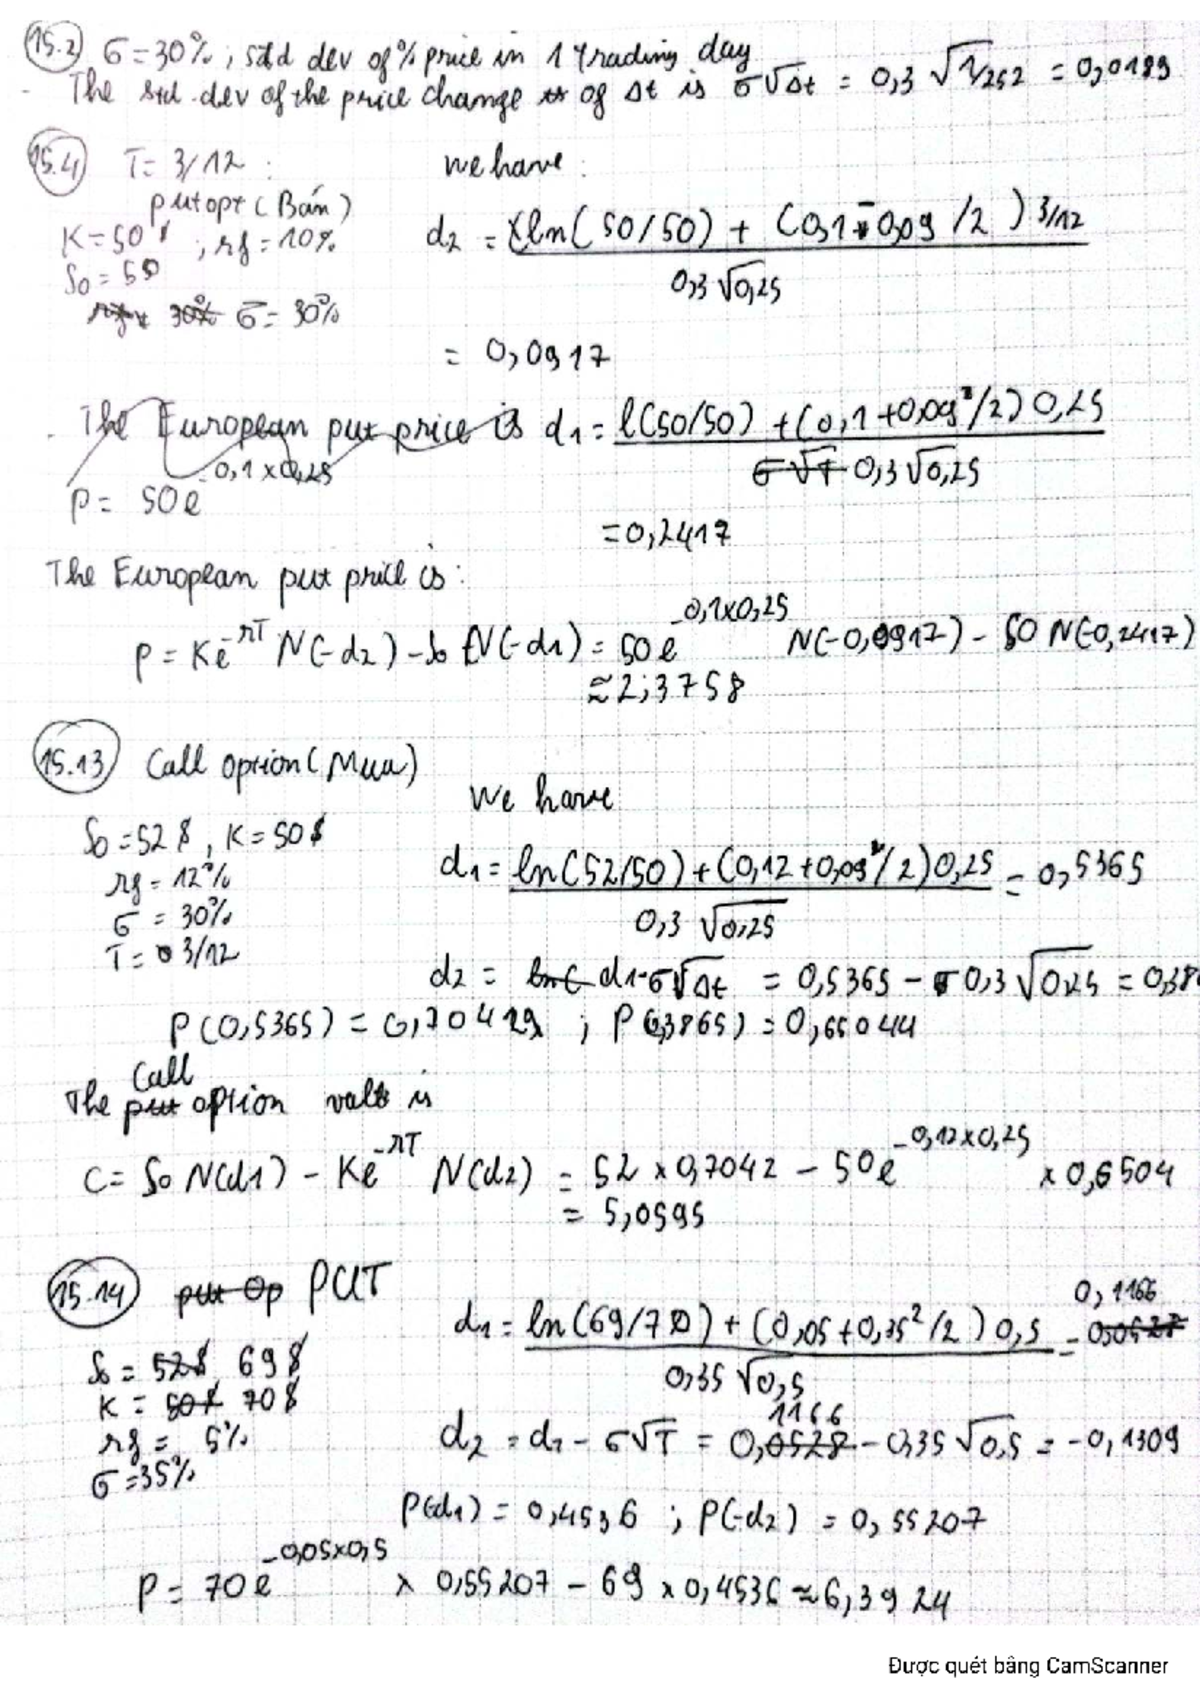 15.2 σ = 30%, std dev of % price in 1 trading day
- The std.dev of the price change of Δt is σ√Δt = 0,3 √1/252 = 0,0189
15.4 T = 3/12 : we have :
put opt (Bán)
K = 50 $ ; rf = 10%
S0 = 50
σ = 30%
d2 = ln(50/50) + (0,1 - 0,09 /2) 3/12
0,3 √0,25
= 0,0917
. The European put price is d1 = l(50/50) + (0,1 + 0,09²/2) 0,25
σ√T 0,3 √0,25
P = 50e 0,1 x 0,25
= 0,2417
The European put price is :
P = Ke^-rT N(-d2) - S0 N(-d1) = 50e^-0,1x0,25 N(-0,0917) - 50 N(-0,2417)
≈ 2,3758
15.13 Call option (Mua)
We have
S0 = 52 $, K = 50 $
rf = 12%
σ = 30%
T = 3/12
d1 = ln(52/50) + (0,12 + 0,09²/2) 0,25 = 0,5365
0,3 √0,25
d2 = d1 - σ√Δt = 0,5365 - 0,3 √0,25 = 0,386
P(0,5365) = 0,70419 ; P(0,3865) = 0,65044
Call
The put option is
C = S0 N(d1) - Ke^-rT N(d2) = 52 x 0,7042 - 50e^-0,12x0,25 x 0,6504
= 5,0595
15.14 put Op PUT
S0 = 52$ 69 $
K = 50$ 70 $
rf = 5%
σ = 35%
d1 = ln(69/70) + (0,05 + 0,35²/2) 0,5 = 0,1166
0,35 √0,5
d2 = d1 - σ√T = 0,1166 - 0,35 √0,5 = -0,1309
P(-d1) = 0,4536 ; P(-d2) = 0,55207
P = 70e^-0,05x0,5 x 0,55207 - 69 x 0,4536 ≈ 6,3924
Được quét bằng CamScanner